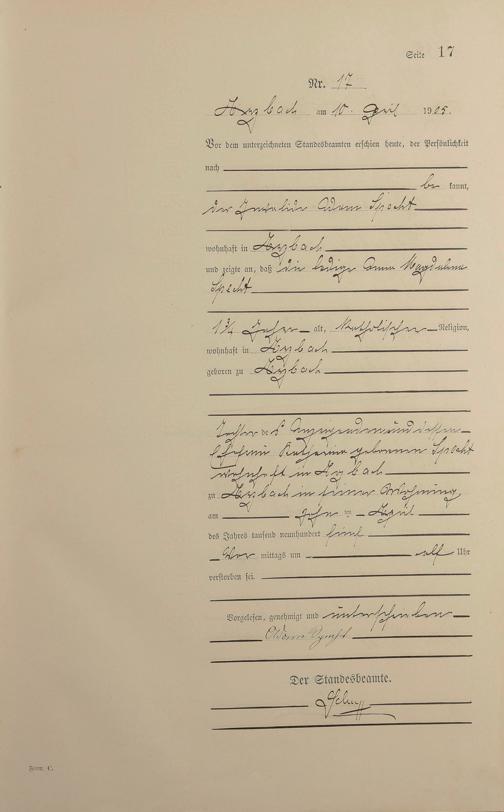 Seite 17
Nr. 17
am 10. April 1905.
Vor dem unterzeichneten Standesbeamten erschien heute, der Persönlichkeit
nach
be kannt,
der Invalide Adam Specht
wohnhaft in
und zeigte an, daß die ledige Anna Magdalena
Specht
1 3/4 Jahre alt, katholischer Religion,
wohnhaft in
geboren zu
Tochter des Anzeigenden und dessen
Ehefrau Katharina geborenen Specht
wohnhaft in
zu in seiner Wohnung
am zehn ten April
des Jahres tausend neunhundert fünf
Vor mittags um elf Uhr
verstorben sei.
Vorgelesen, genehmigt und unterschrieben
Adam Specht
Der Standesbeamte.
Form. C.